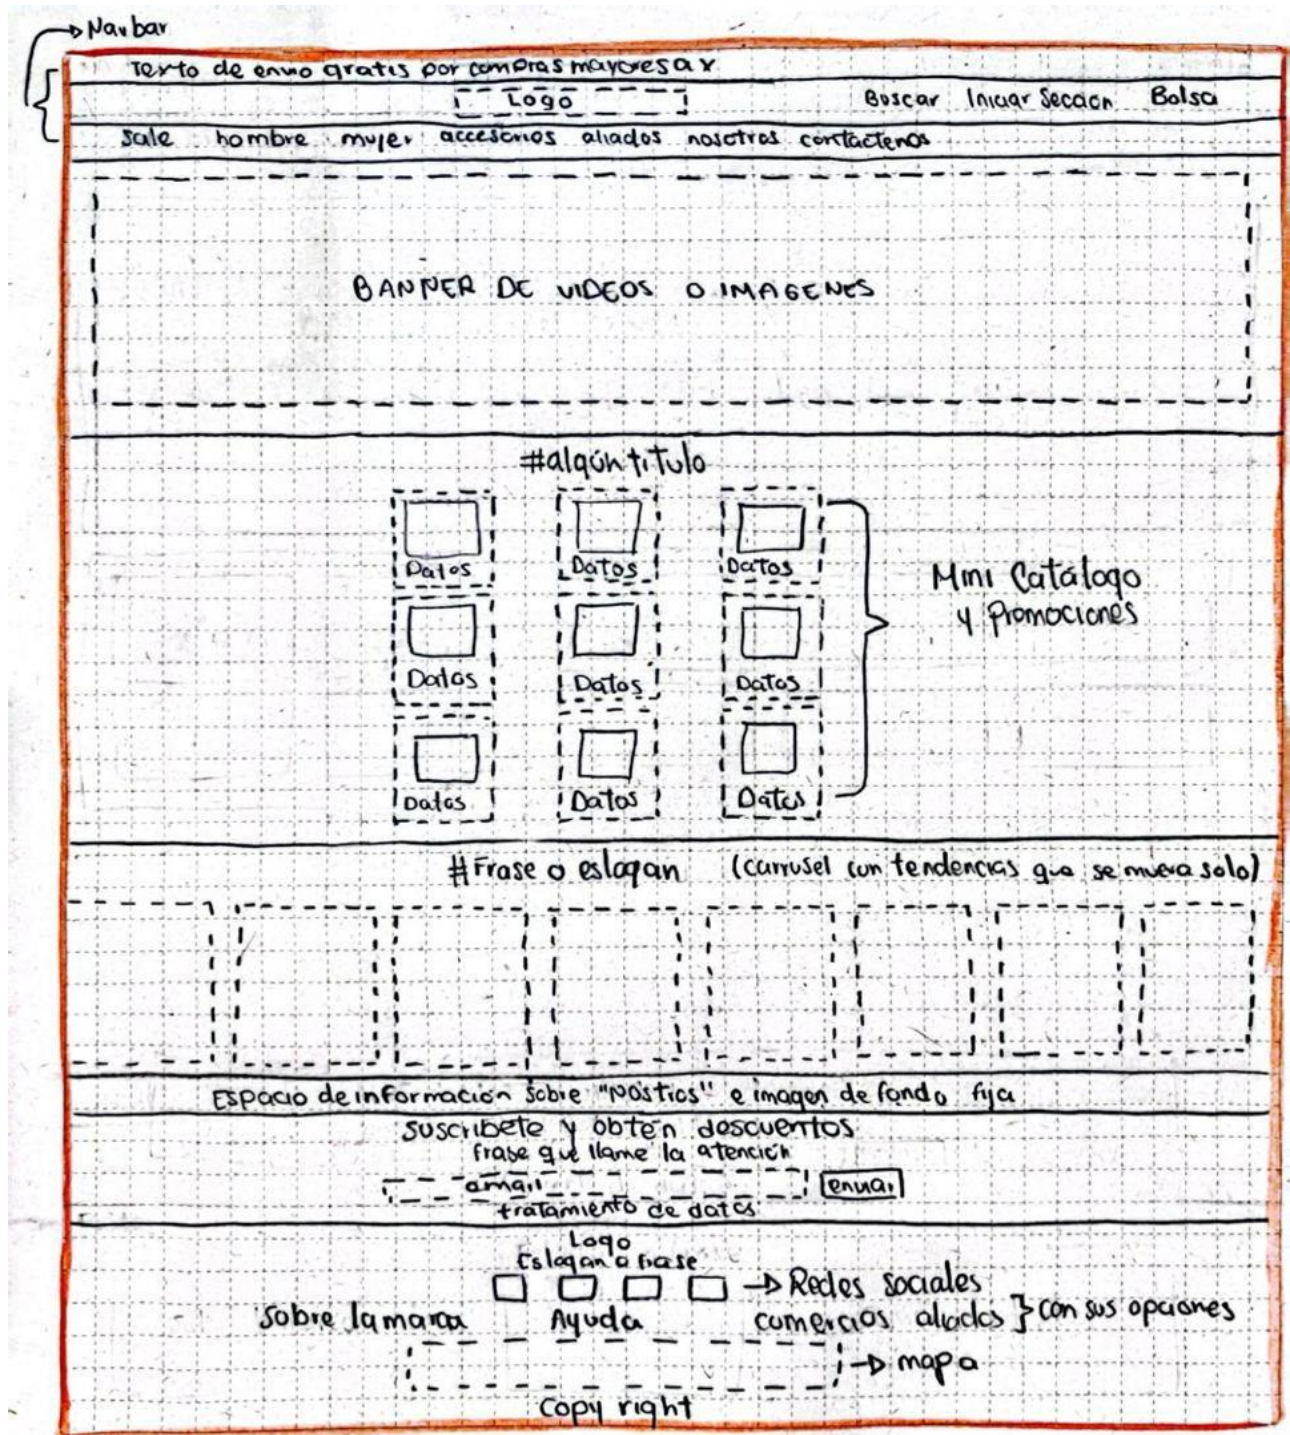 Navbar
Texto de envio gratis por compras mayores a x
Logo Buscar Iniciar Sección Bolsa
sale hombre mujer accesorios aliados nosotros contáctenos
BANNER DE VIDEOS O IMAGENES
#algún titulo
Datos Datos Datos
Mini Catálogo
y promociones
Datos Datos Datos
Datos Datos Datos
#Frase o eslogan (carrusel con tendencias que se mueva solo)
Espacio de información sobre "Nostros" e imagen de fondo fija
suscribete y obten descuentos
frase que llame la atención
email enviar
tratamiento de datos
Logo
Eslogan o frase
Redes sociales
Sobre la marca Ayuda comercios aliados con sus opciones
mapa
Copy right